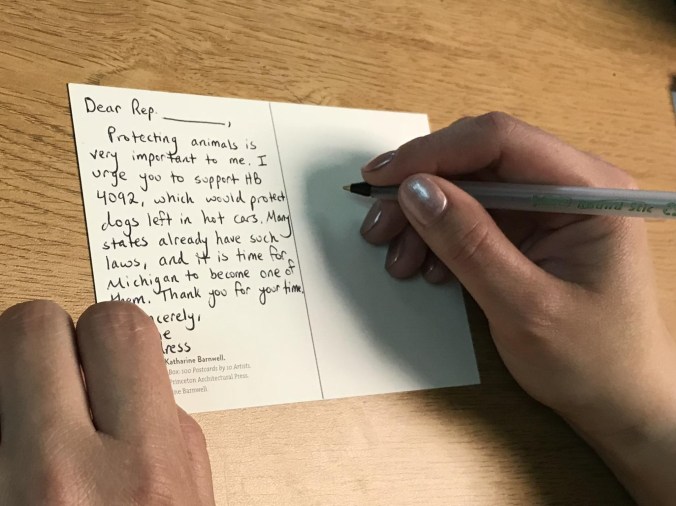 Dear Rep. ________,
Protecting animals is
very important to me. I
urge you to support HB
4092, which would protect
dogs left in hot cars. Many
states already have such
laws, and it is time for
Michigan to become one of
them. Thank you for your time.
cerely,
e
ress
Katharine Barnwell.
Box: 100 Postcards by 10 Artists.
Princeton Architectural Press.
ine Barnwell